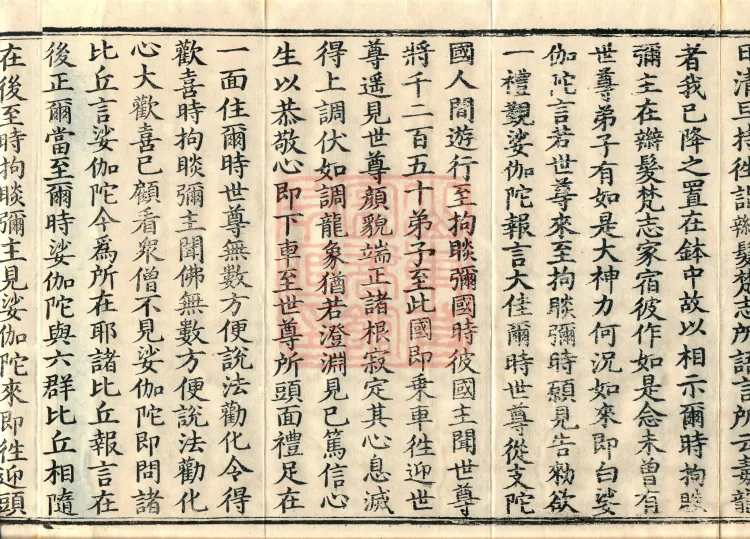 日清旦持往詣辮髮梵志所語言所云毒龍
者我已降之置在鉢中故以相示爾時拘睒
彌主在辮髮梵志家宿彼作如是念未曾有
世尊弟子有如是大神力何況如來即白娑
伽陀言若世尊來至拘睒彌時願見告勑欲
一禮覲娑伽陀報言大佳爾時世尊從支陀
國人間遊行至拘睒彌國時彼國主聞世尊
將千二百五十弟子至此國即乗車往迎世
尊遥見世尊顏貌端正諸根寂定其心息滅
得上調伏如調龍象猶若澄淵見已篤信心
生以恭敬心即下車至世尊所頭面禮足在
一面住爾時世尊無數方便說法勸化令得
歡喜時拘睒彌主聞佛無數方便說法勸化
心大歡喜已顧看衆僧不見娑伽陀即問諸
比丘言娑伽陀今為所在耶諸比丘報言在
後正爾當至爾時娑伽陀與六群比丘相隨
在後至時拘睒彌主見娑伽陀來即往迎頭